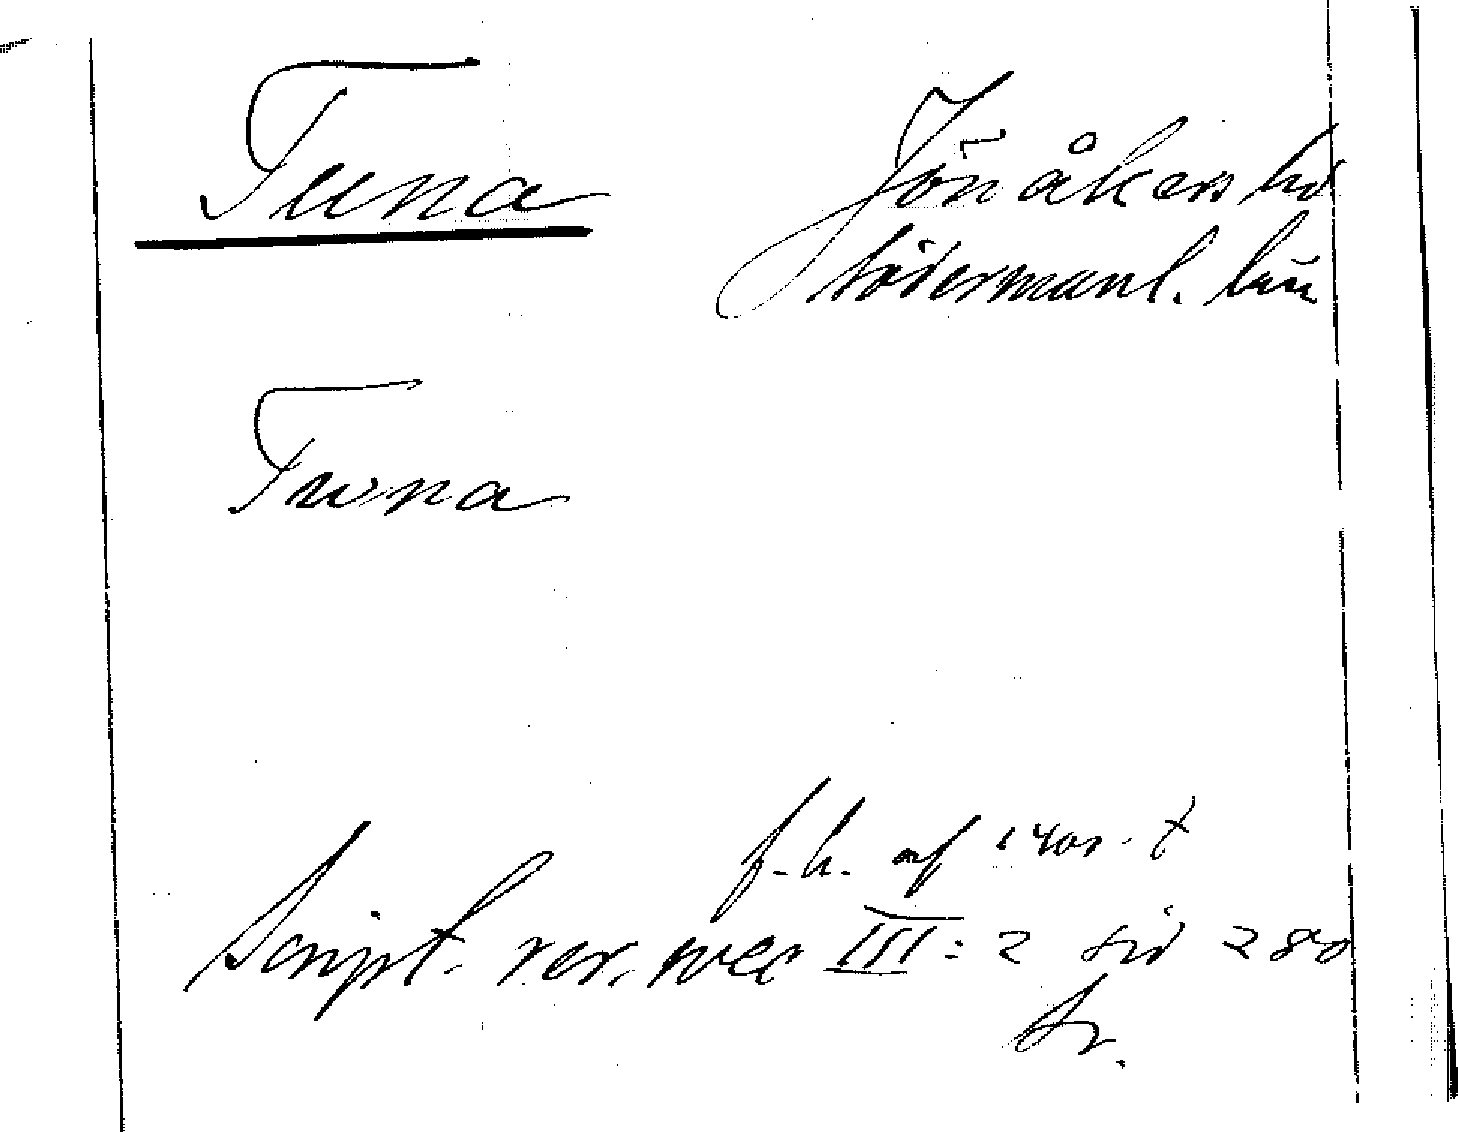 Tuna
Jönåkers hd
Södermanl. län
Twna
f. h. af 1400-t
Script. rer. svec III: 2 sid 280
Sr.